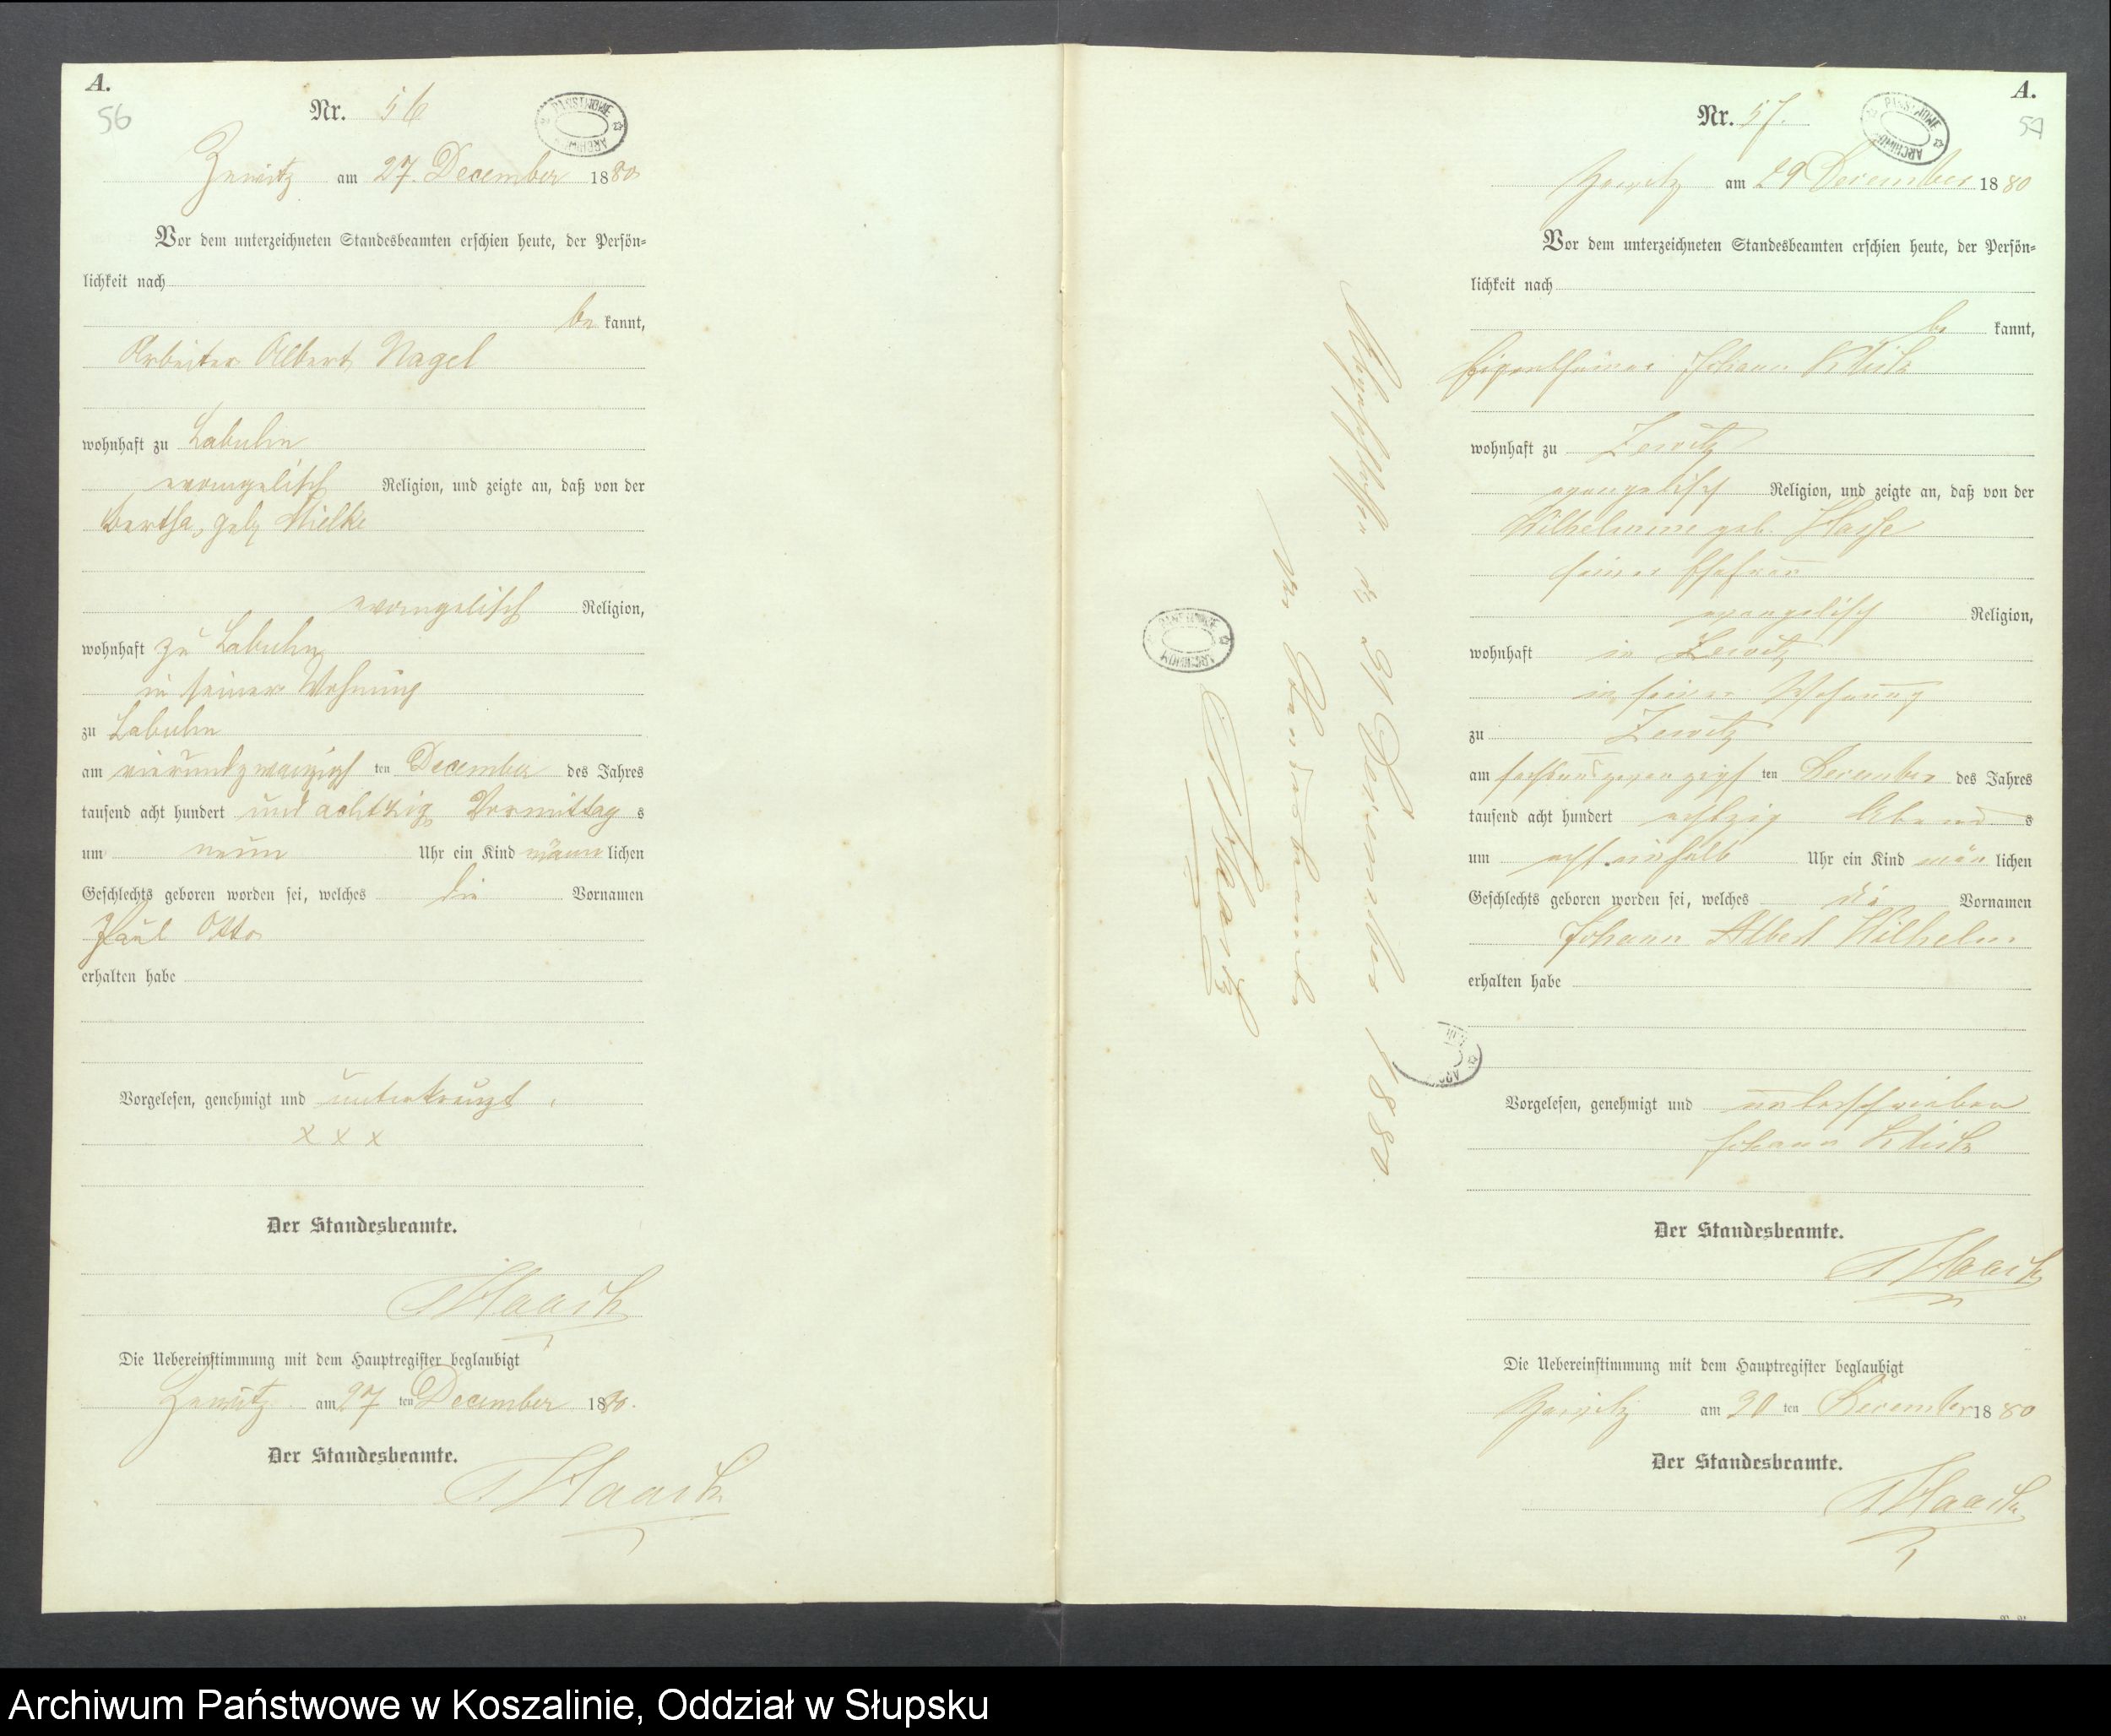 A.
56
Nr. 56
Zewitz am 27. December 1880
Vor dem unterzeichneten Standesbeamten erschien heute, der Persön=
lichkeit nach
be kannt,
Arbeiter Albert Nagel
wohnhaft zu Labuhn
evangelisch Religion, und zeigte an, daß von der
Bertha, geb. Mielke
evangelisch Religion,
wohnhaft zu Labuhn
in seiner Wohnung
zu Labuhn
am vierundzwanzigsten December des Jahres
tausend acht hundert und achtzig Vormittag s
um neun Uhr ein Kind männlichen
Geschlechts geboren worden sei, welches die Vornamen
Paul Otto
erhalten habe
Vorgelesen, genehmigt und unterkreuzt.
x x x
Der Standesbeamte.
Haack
Die Uebereinstimmung mit dem Hauptregister beglaubigt
Zewitz am 27 ten December 1880.
Der Standesbeamte.
Haack
A.
57
Nr. 57.
Zewitz am 29 December 1880
Vor dem unterzeichneten Standesbeamten erschien heute, der Persön=
lichkeit nach
be kannt,
Eigenthümer Johann
wohnhaft zu Zewitz
evangelisch Religion, und zeigte an, daß von der
Wilhelmine geb.
seiner Ehefrau
evangelisch Religion,
wohnhaft in Zewitz
in seiner Wohnung
zu Zewitz
am ten December des Jahres
tausend acht hundert achtzig Abend s
um acht einhalb Uhr ein Kind män lichen
Geschlechts geboren worden sei, welches die Vornamen
Johann Albert Wilhelm
erhalten habe
Vorgelesen, genehmigt und unterschrieben
Johann
Der Standesbeamte.
Haack
Die Uebereinstimmung mit dem Hauptregister beglaubigt
Zewitz am 30 ten December 1880
Der Standesbeamte.
Haack
Abgeschlossen d. 31 December 1880.
Der Standesbeamte
Haack
Archiwum Państwowe w Koszalinie, Oddział w Słupsku